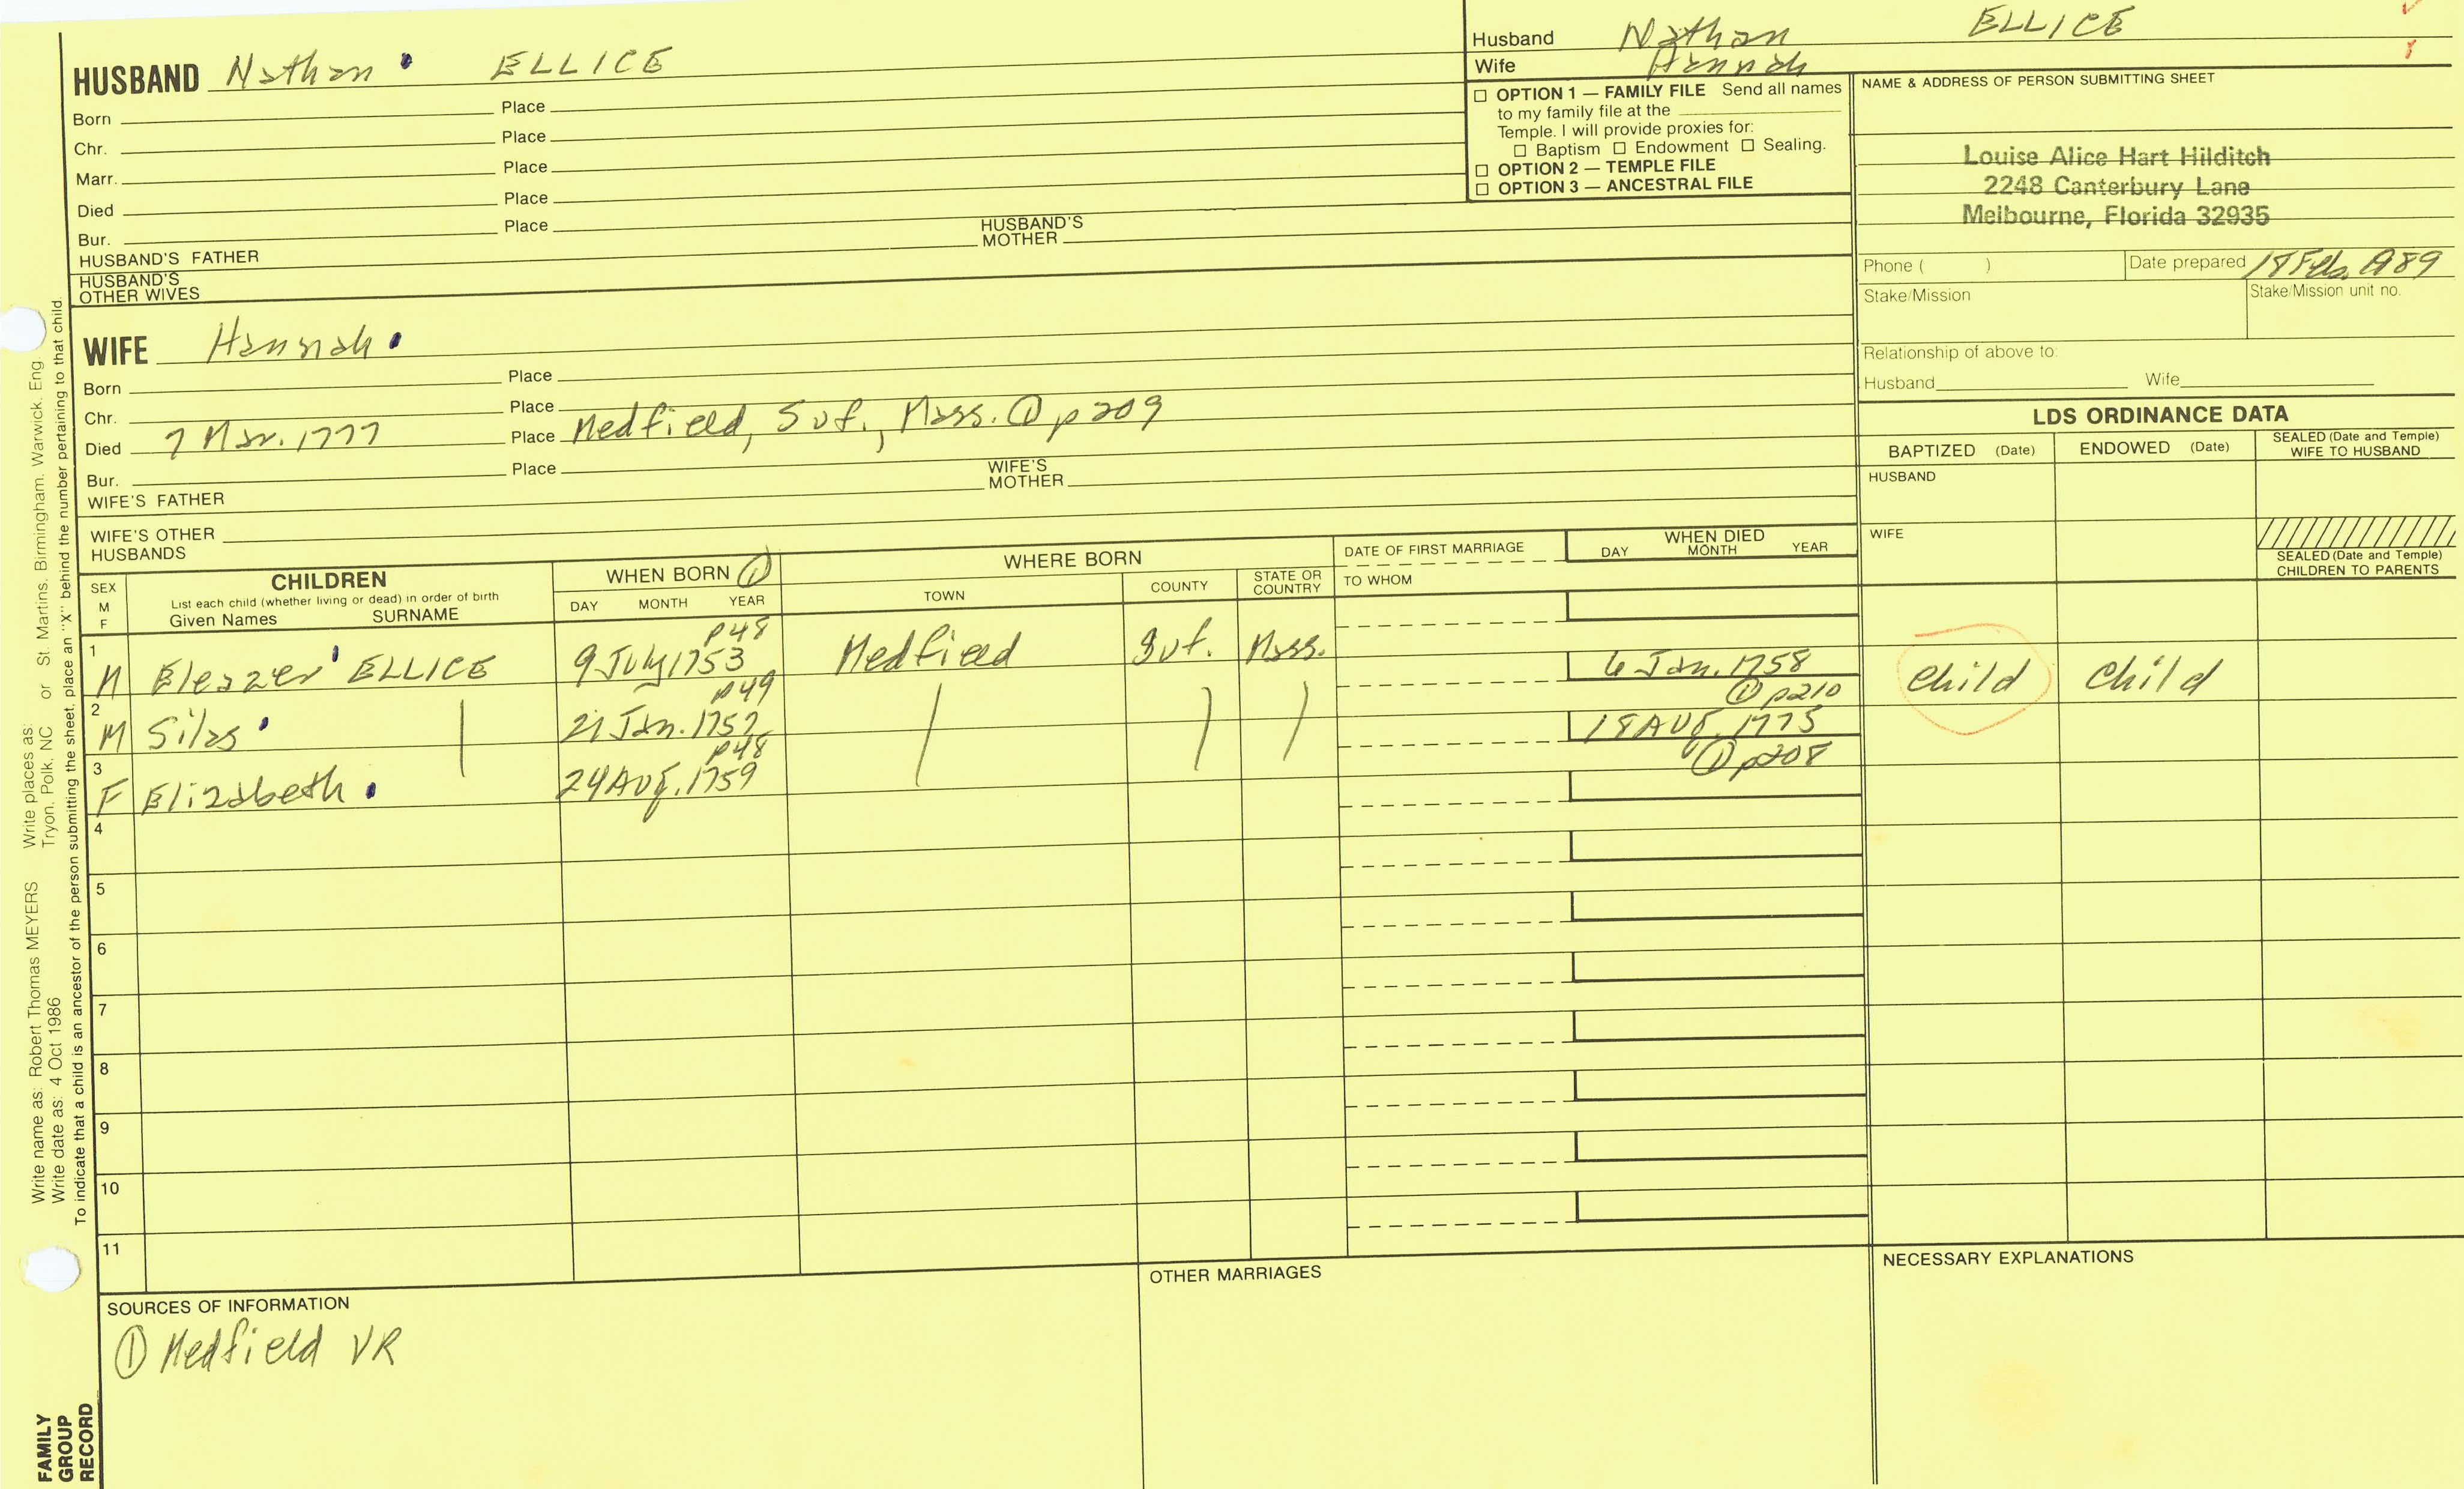 HUSBAND Nathan ELLICE
Born Place
Chr. Place
Marr. Place
Died Place
Bur. Place
HUSBAND'S FATHER HUSBAND'S MOTHER
HUSBAND'S OTHER WIVES
Husband Nathan ELLICE
Wife Hannah
☐ OPTION 1 — FAMILY FILE Send all names
to my family file at the
Temple. I will provide proxies for:
☐ Baptism ☐ Endowment ☐ Sealing.
☐ OPTION 2 — TEMPLE FILE
☐ OPTION 3 — ANCESTRAL FILE
NAME & ADDRESS OF PERSON SUBMITTING SHEET
Louise Alice Hart Hilditch
2248 Canterbury Lane
Melbourne, Florida 32935
Phone ( ) Date prepared 18 Feb. 1989
Stake/Mission Stake/Mission unit no.
Relationship of above to:
Husband Wife
WIFE Hannah
Born Place
Chr. Place
Died 7 Mar. 1777 Place Medfield, Suf., Mass. ① p209
Bur. Place
WIFE'S FATHER WIFE'S MOTHER
WIFE'S OTHER HUSBANDS
LDS ORDINANCE DATA
BAPTIZED (Date) ENDOWED (Date) SEALED (Date and Temple) WIFE TO HUSBAND
HUSBAND
WIFE
SEALED (Date and Temple) CHILDREN TO PARENTS
SEX M F
CHILDREN
List each child (whether living or dead) in order of birth
Given Names SURNAME
WHEN BORN ①
DAY MONTH YEAR
WHERE BORN
TOWN COUNTY STATE OR COUNTRY
DATE OF FIRST MARRIAGE
TO WHOM
WHEN DIED
DAY MONTH YEAR
1 M Eleazer ELLICE 9 July 1753 p48 Medfield Suf. Mass. 6 Jan. 1758 ① p210 Child Child
2 M Silas 21 Jan. 1757 p49 18 Aug. 1775 ① p208
3 F Elizabeth 24 Aug. 1759 p48
4
5
6
7
8
9
10
11
SOURCES OF INFORMATION
① Medfield VR
OTHER MARRIAGES
NECESSARY EXPLANATIONS
Write name as: Robert Thomas MEYERS Write places as: or St. Martins, Birmingham, Warwick, Eng.
Write date as: 4 Oct 1986 Tryon, Polk, NC
To indicate that a child is an ancestor of the person submitting the sheet, place an "X" behind the number pertaining to that child.
FAMILY
GROUP
RECORD